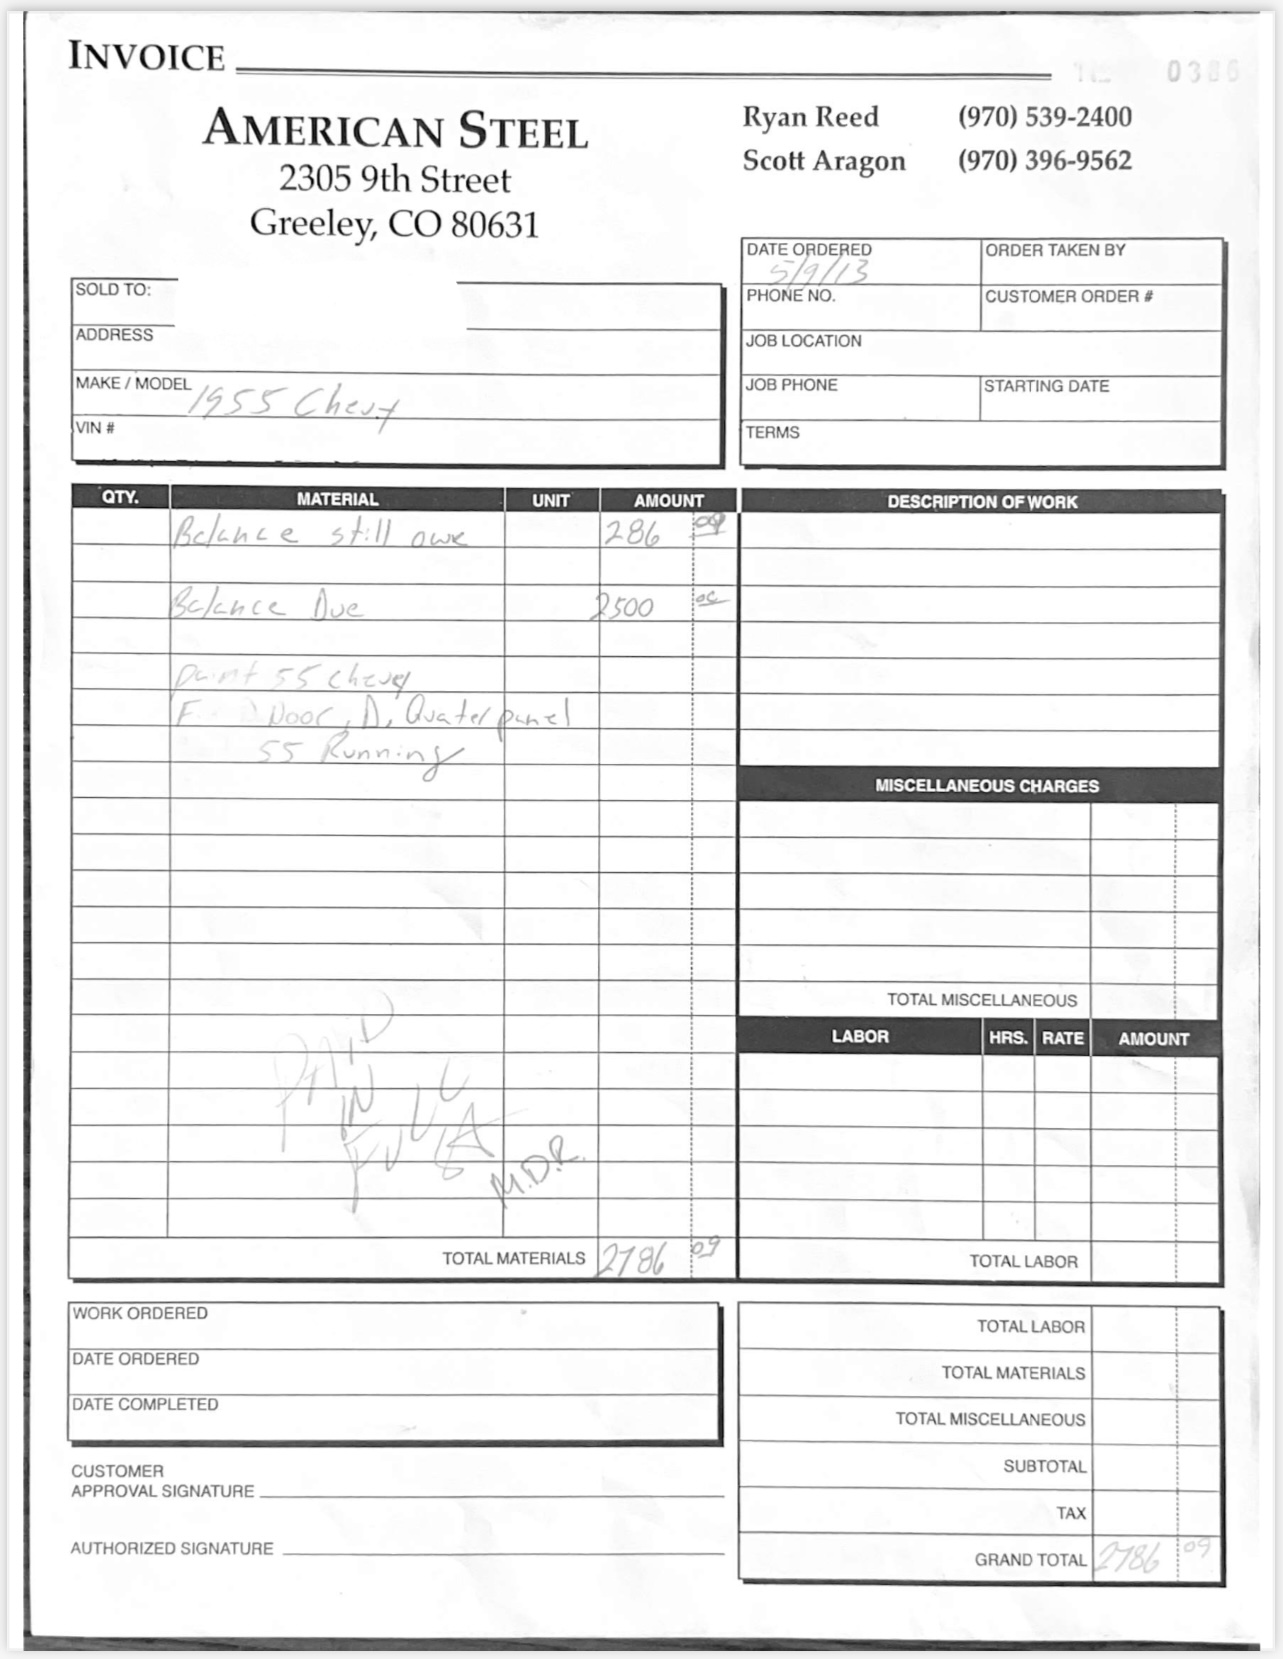 INVOICE
0386
AMERICAN STEEL
2305 9th Street
Greeley, CO 80631
Ryan Reed (970) 539-2400
Scott Aragon (970) 396-9562
DATE ORDERED 5/9/13
ORDER TAKEN BY
PHONE NO.
CUSTOMER ORDER #
JOB LOCATION
JOB PHONE
STARTING DATE
TERMS
SOLD TO:
ADDRESS
MAKE / MODEL 1955 Chevy
VIN #
QTY. MATERIAL UNIT AMOUNT
Balance still owe 286 09
Balance Due 2500 00
paint 55 chevy
Door, D, Quater panel
55 Running
PAID
IN
FULL
M.D.R.
TOTAL MATERIALS 2786 09
DESCRIPTION OF WORK
MISCELLANEOUS CHARGES
TOTAL MISCELLANEOUS
LABOR HRS. RATE AMOUNT
TOTAL LABOR
WORK ORDERED
DATE ORDERED
DATE COMPLETED
CUSTOMER
APPROVAL SIGNATURE
AUTHORIZED SIGNATURE
TOTAL LABOR
TOTAL MATERIALS
TOTAL MISCELLANEOUS
SUBTOTAL
TAX
GRAND TOTAL 2786 09